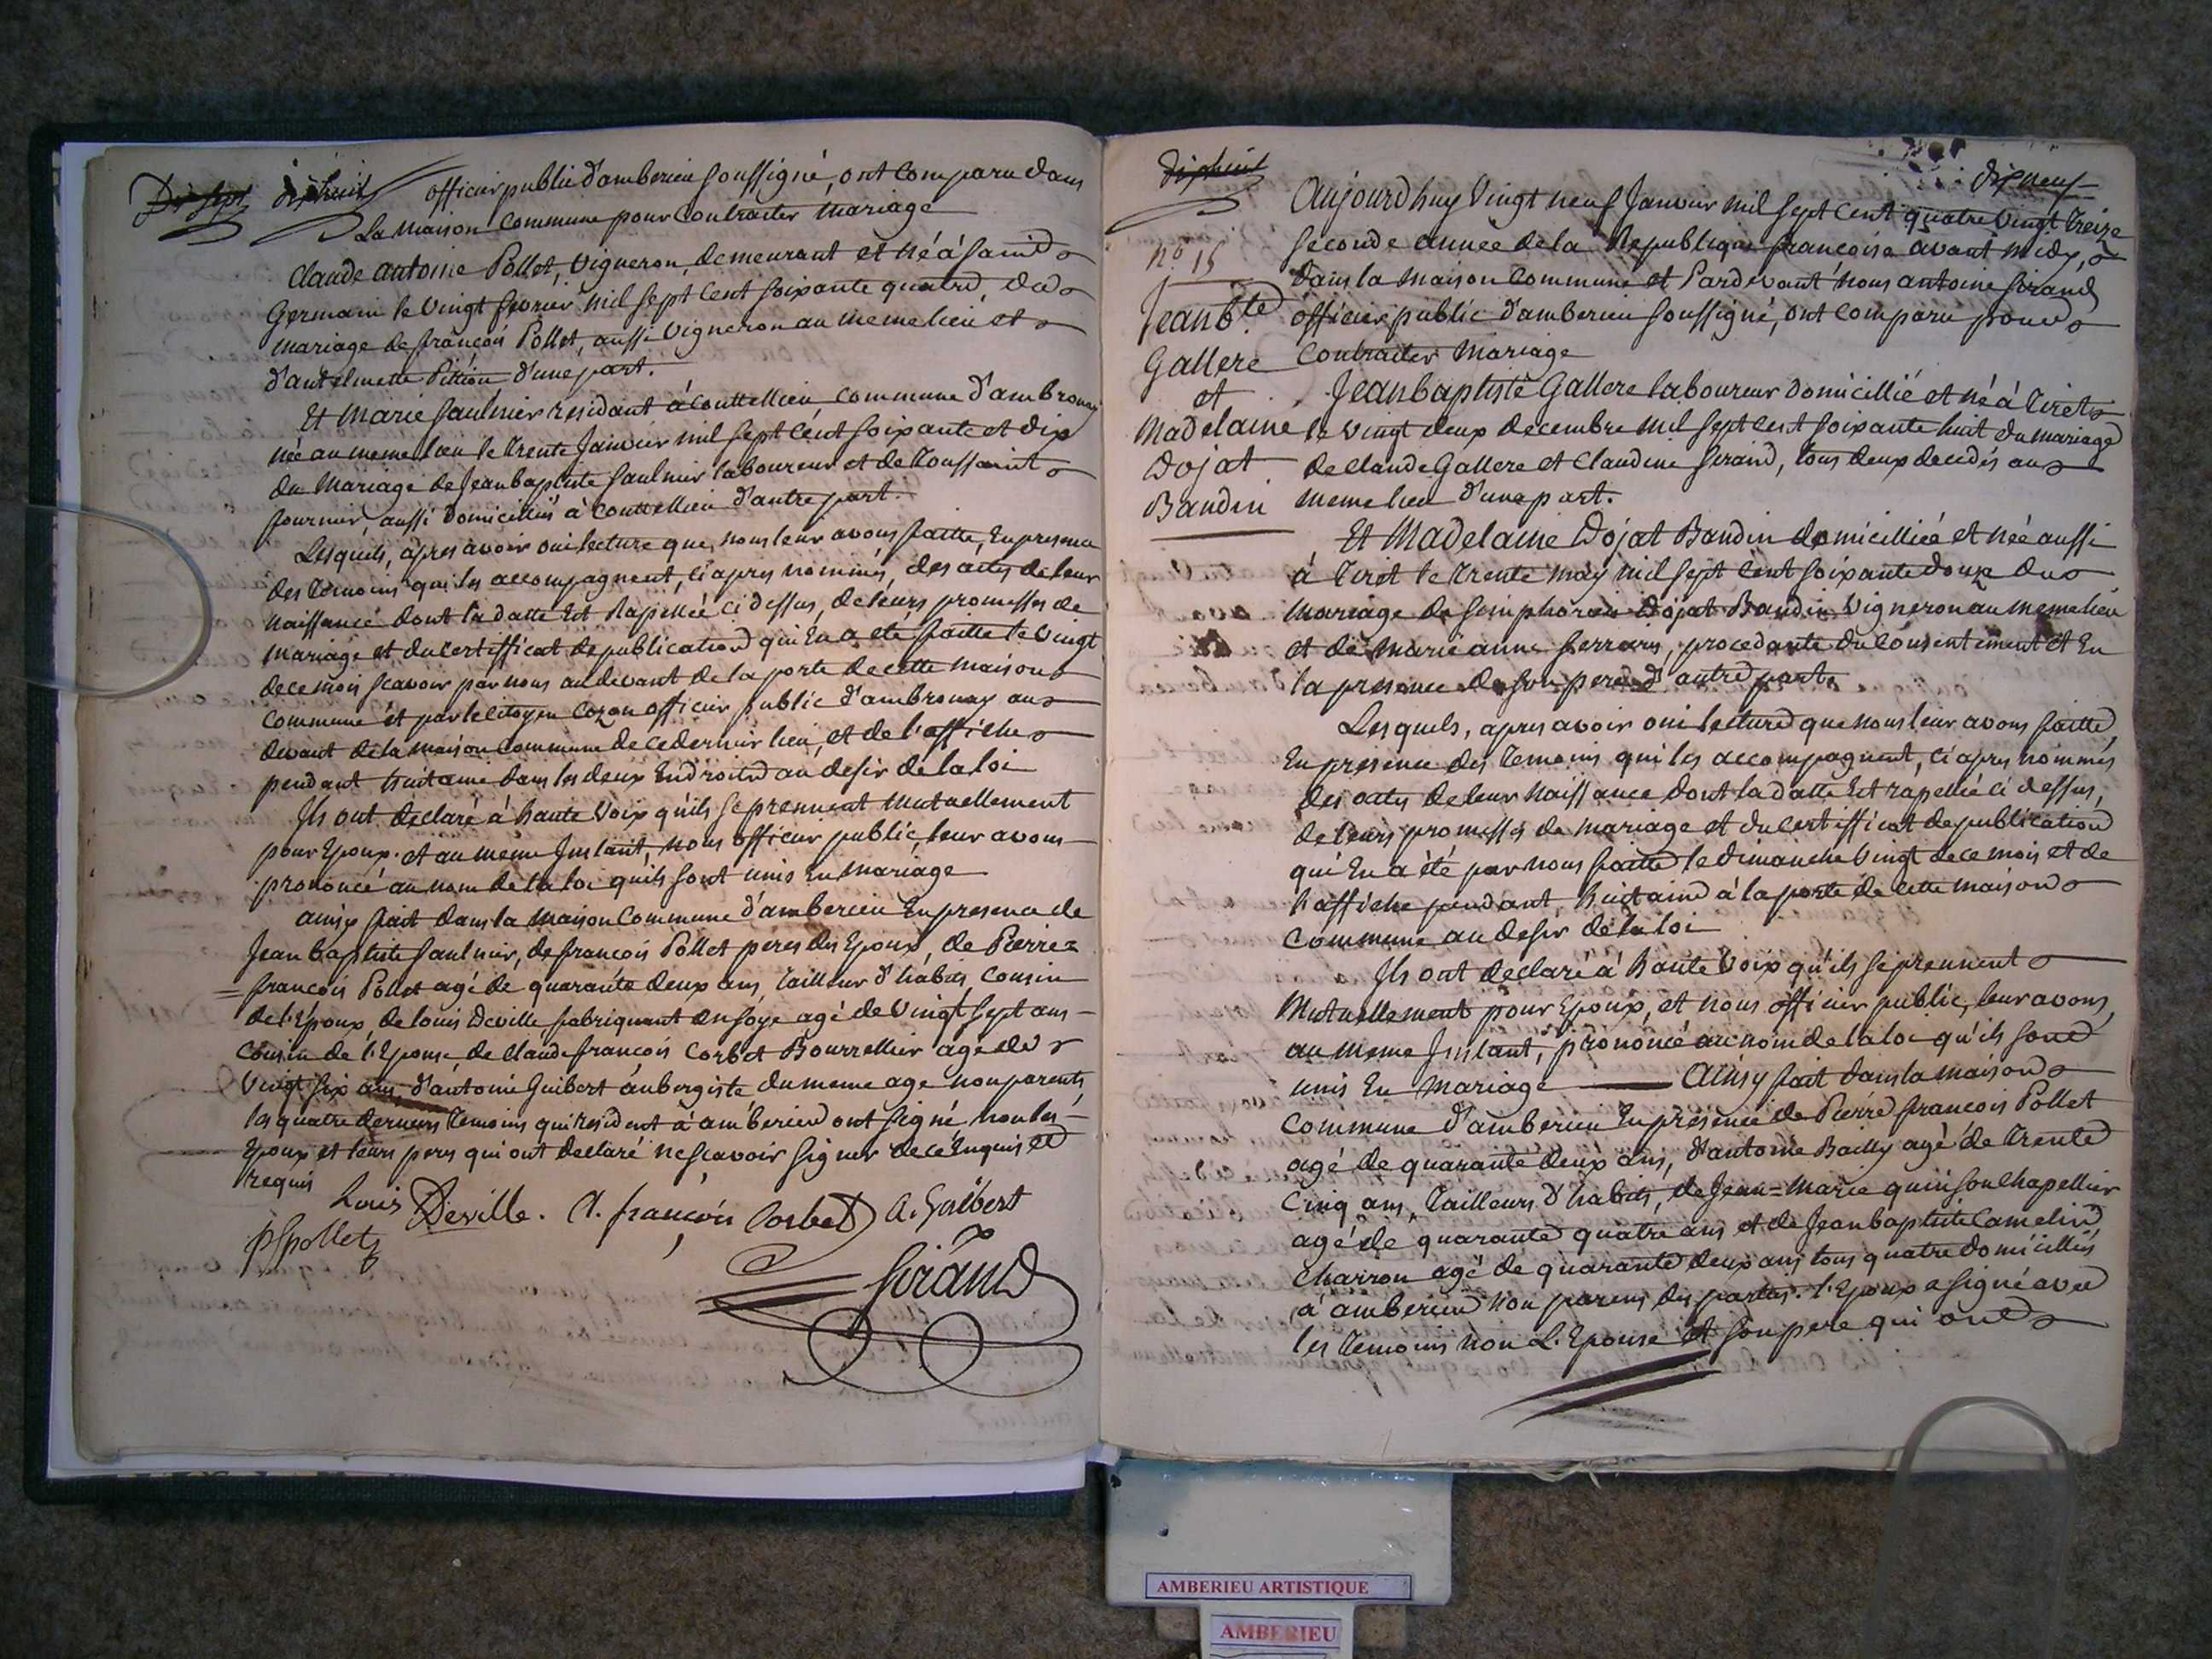 Dix sept dixhuit officier public d'amberieu soussigné, ont comparu dans
La maison commune pour Contracter mariage
Claude antoine Pollet, vigneron, demeurant et né à saint
Germain le vingt fevrier mil sept cent soixante quatre, du
mariage de françois Pollet, aussi vigneron au meme lieu et
d'antelmette Pittion d'une part.
Et Marie Saulnier residant à Couttellieu commune d'ambronay
née au meme lieu le trente Janvier mil sept cent soixante et dix
du Mariage de Jean baptiste Saulnier laboureur et de Toussainte
fournier, aussi domiciliés à Couttellieu d'autre part.
Lesquels, apres avoir oui lecture que nous leur avons faitte, En presence
des temoins qui les accompagnent, ci apres nommés, des actes de leur
naissance dont la datte Est Rapellée ci dessus, de leurs promesses de
mariage et du certifficat de publication qui En a eté faitte le vingt
de ce mois scavoir par nous au devant de la porte de cette maison
commune et par le citoyen Cozon officier public d'ambronay au
devant de la maison commune de ce dernier lieu, et de l'affiche
pendant huitaine dans les deux Endroits au desir de la loi
Ils ont declaré à haute voix qu'ils se prennent mutuellement
pour Epoux. et au meme Instant, nous officier public, leur avons
prononcé au nom de la loi qu'ils sont unis En mariage
ainsy fait dans la maison Commune d'amberieu En presence de
Jean baptiste Saulnier, de françois Pollet peres des Epoux, de Pierre
= françois Pollet agé de quarante deux ans, tailleur d'habits, cousin
de l'Epoux, de louis Deville fabriquant En soye agé de vingt sept ans
cousin de l'Epouse de Claude françois Corbet Bourrellier agé de
vingt six ans, d'antoine Guibert aubergiste du meme age non parents,
les quatre derniers temoins qui resident à amberieu ont signé non les
Epoux et leurs peres qui ont declaré ne scavoir signer de ce Enquis et
requis
Louis Deville. Cl. françois Corbet A. Guibert
pfpollet
Sirand
dixhuit
dix neuf
Aujourdhuy vingt neuf Janvier mil sept cent quatre vingt treize
seconde année de la Republique francoise avant midy,
n° 15
dans la maison commune et Pardevant nous antoine Sirand
Jean b.te officier public d'amberieu soussigné, ont comparu pour
Gallere Contracter Mariage
et Jean baptiste Gallere laboureur domicillié et né à Tiret
Madelaine le vingt deux decembre mil sept cent soixante huit du mariage
Dojat de Claude Gallere et Claudine Serand, tous deux decedés au
Baudin meme lieu d'une part.
Et Madelaine Dojat Baudin domicilliée et née aussi
à Tiret le trente may mil sept cent soixante douze du
mariage de Seimphorien Dojat Baudin vigneron au meme lieu
et de marie anne ferrary, procedante du consentement et En
la presence de son pere d'autre part.
Lesquels, apres avoir oui lecture que nous leur avons faitte,
En presence des temoins qui les accompagnent, ci apres nommés
des actes de leur naissance dont la datte Est rapellée ci dessus,
de leurs promesses de mariage et du certifficat de publication
qui En a été par nous faitte le dimanche vingt de ce mois et de
l'affiche pendant, huitaine à la porte de cette maison
Commune au desir de la loi
Ils ont declaré à haute voix qu'ils se prennent
mutuellement pour Epoux, et nous officier public, leur avons,
au meme Instant, prononcé au nom de la loi qu'ils sont
unis En mariage — Ainsy fait dans la maison
Commune d'amberieu En presence de Pierre francois Pollet
agé de quarante deux ans, d'antoine Bailly agé de trente
cinq ans, tailleurs d'habits, de Jean=Marie quinson chapellier
agé de quarante quatre ans et de Jean baptiste Camelin
charron agé de quarante deux ans tous quatre domicilliés
à amberieu non parens des parties. l'Epoux a signé avec
les temoins non L'Epouse et son pere qui ont
AMBERIEU ARTISTIQUE
AMBERIEU